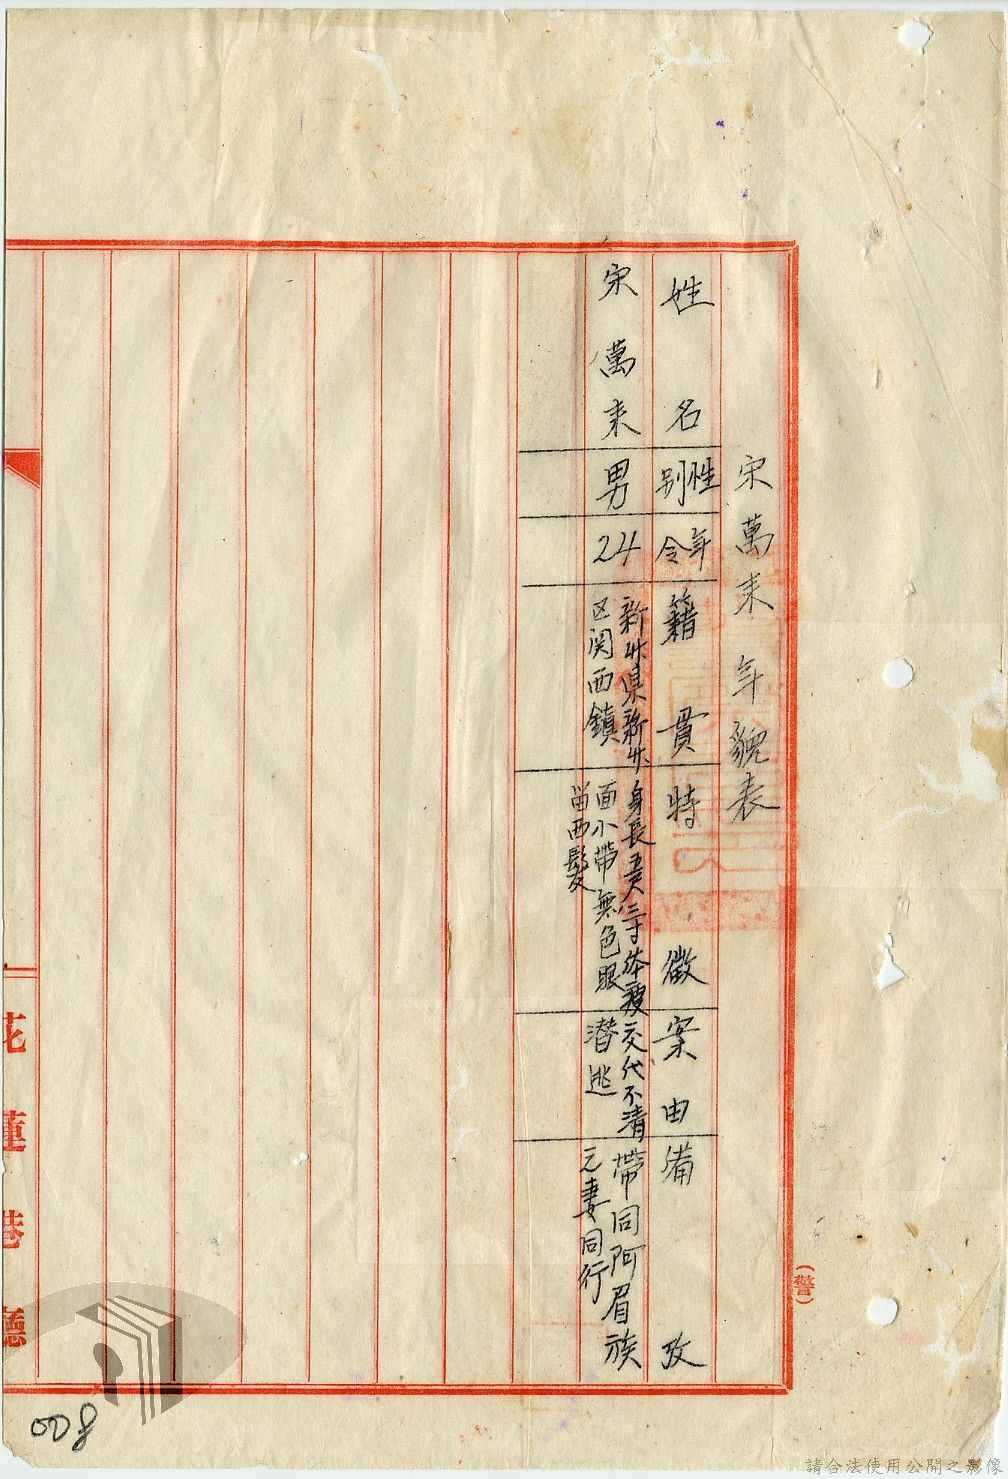 宋萬来年貌表
姓名
性別
年令
籍貫
特徵
案由
備攷
宋萬来
男
24
新竹県新竹
区関西鎮
身長五尺三寸体瘦
面小帶無色眼
留西髮
交代不清
潜逃
帶同阿眉族
之妻同行
(警)
花蓮港廳
008
請合法使用公開之影像